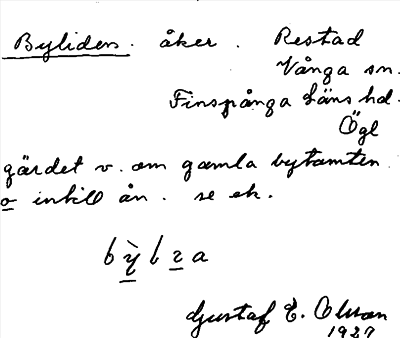 Byliden. åker. Restad
Vånga sn.
Finspånga läns hd.
Ögl
gärdet v. om gamla bytomten
o intill ån. se ek.
Gustaf E. Olsson
1927